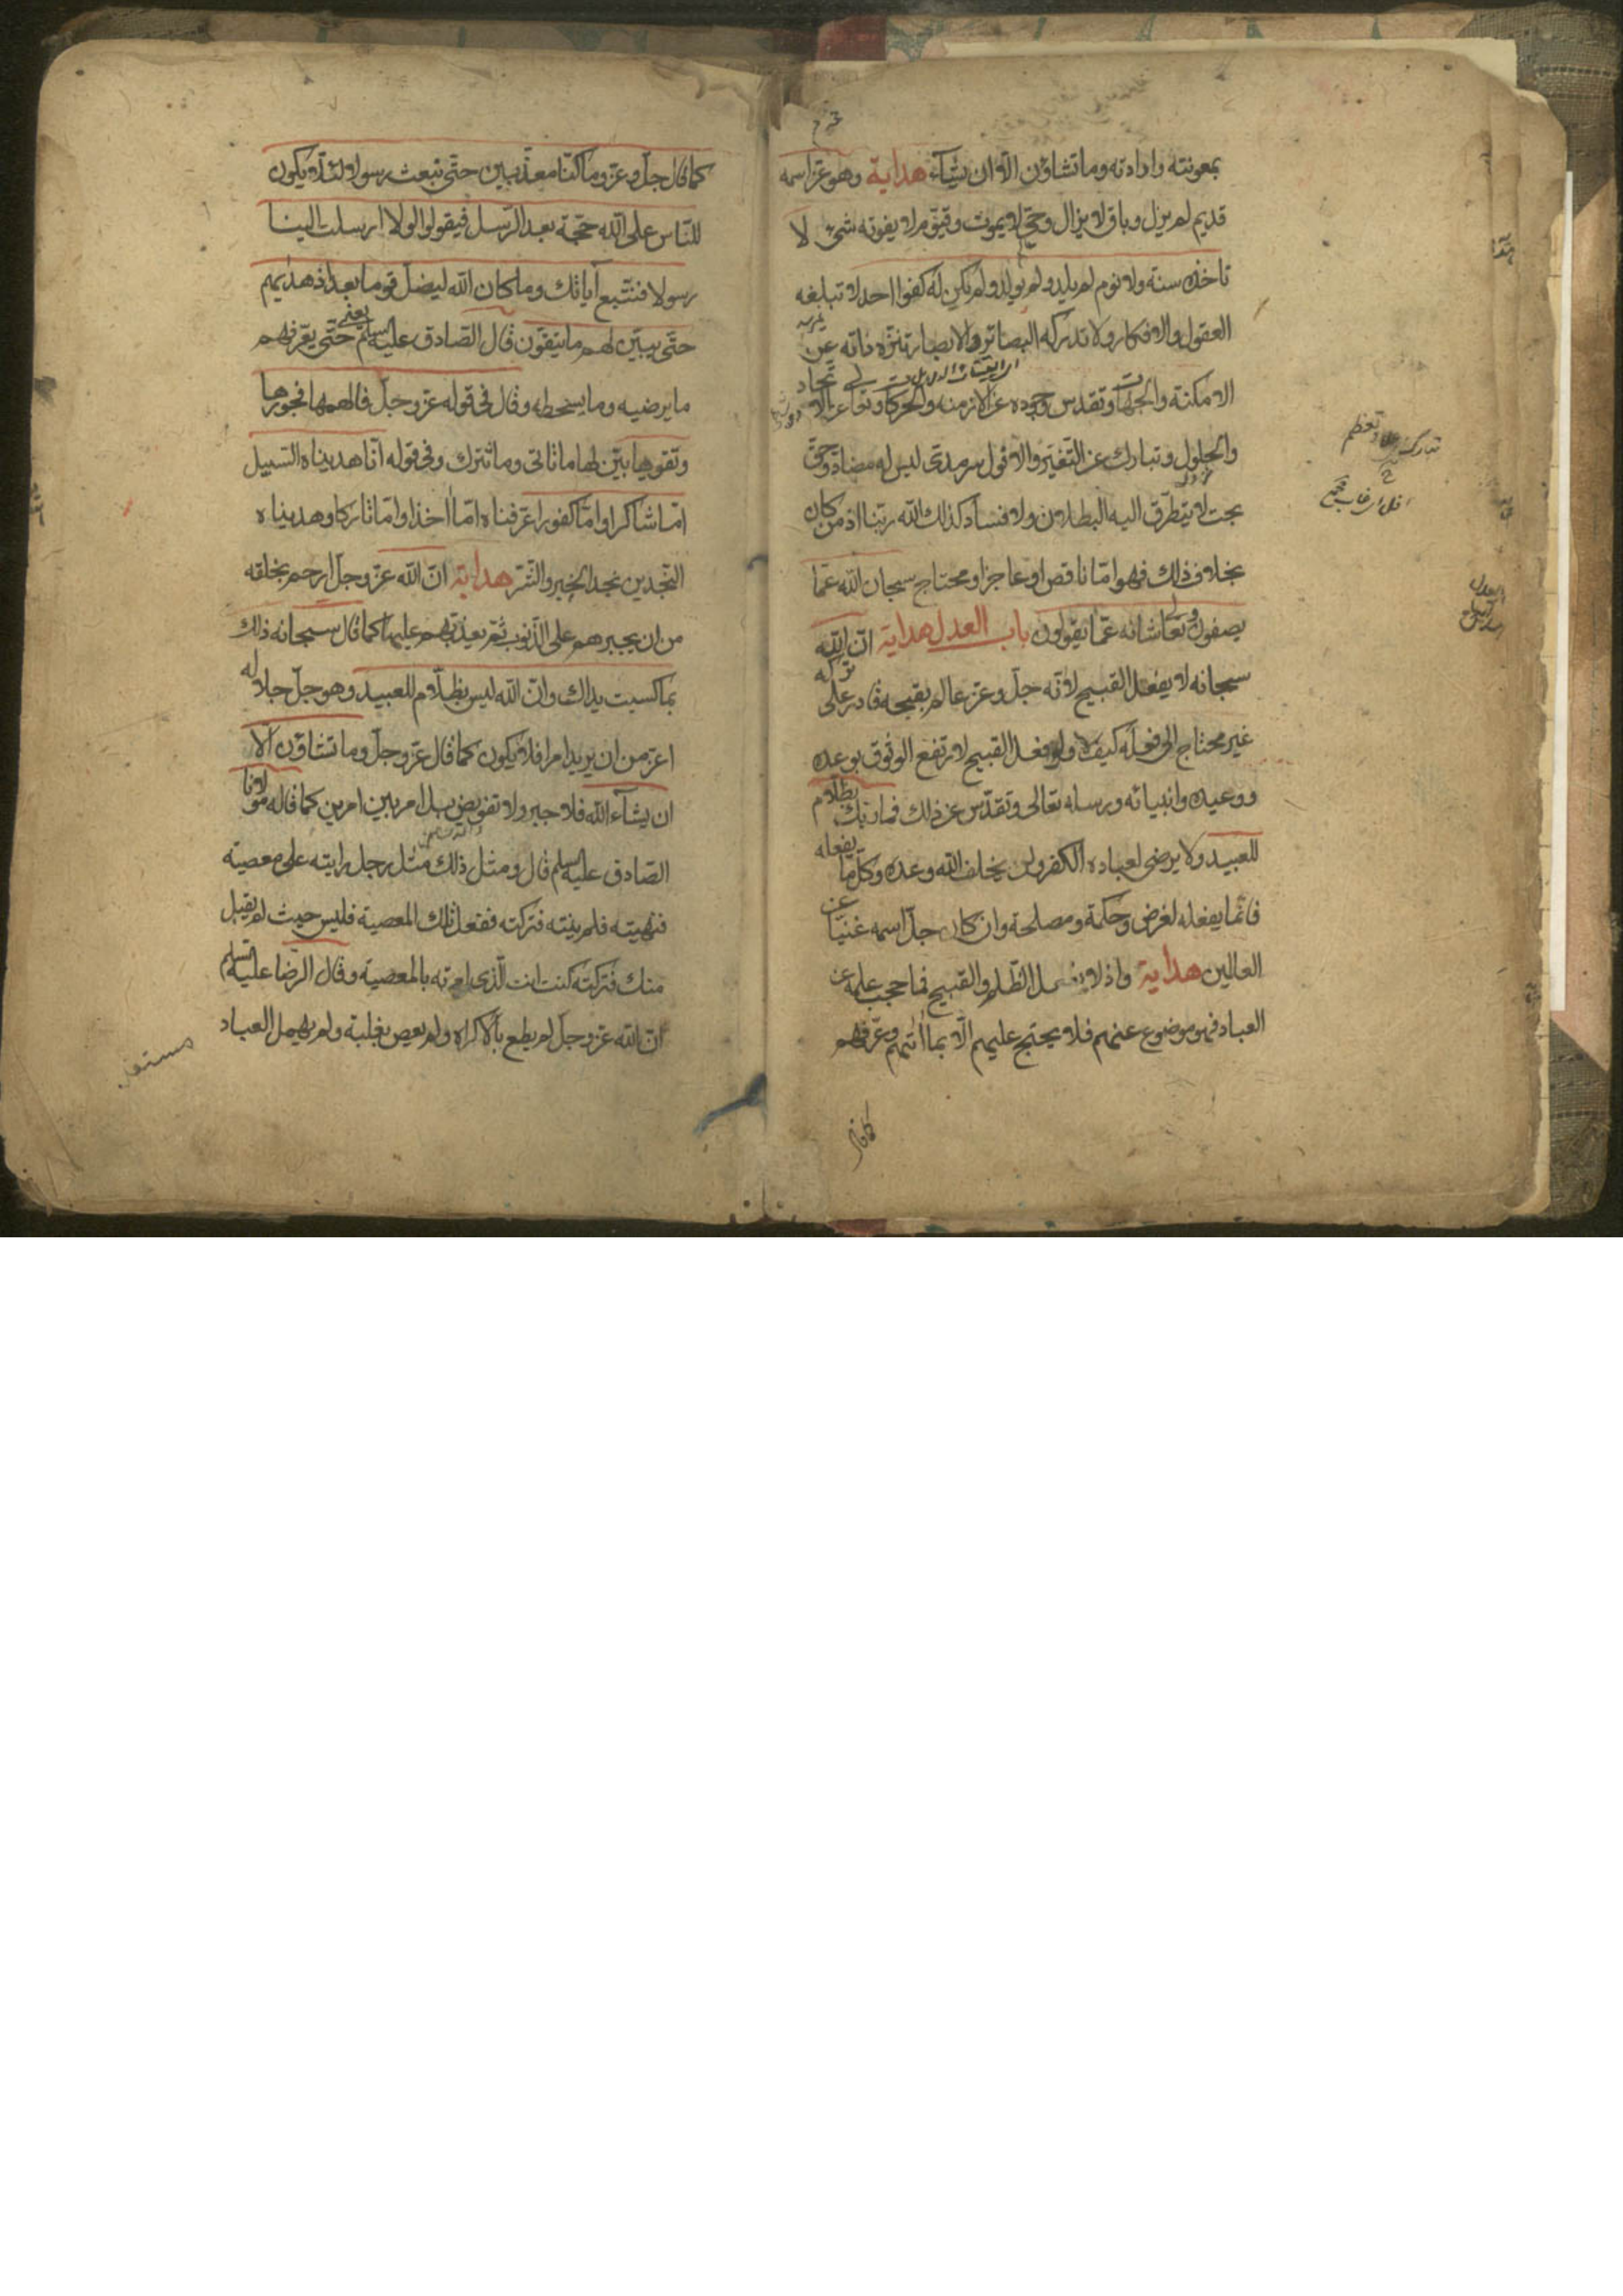 بمعونته وارادته وما تشاؤن الّا ان يشآء هداية وهو عزّ اسمه
قديم لم يزل وباق لا يزال وحيّ لا يموت وقيّوم لا يفوته شيء لا
تاخذه سنة ولا نوم لم يلد ولم يولد ولم يكن له كفوا احد لا تبلغه
العقول والافكار ولا تدركه البصائر والابصار تنزّه ذاته عن
الامكنة والجهات وتقدس وجوده عن الازمنه والحركات وتعا عن الاتحاد
والحلول وتبارك عن التغيّر والافول سرمدى ليس له مضادّ وحق
بحت لا يتطرّق اليه البطلان ولا فساد كذلك الله ربّنا اذ من كان
بخلاف ذلك فهو امّا ناقص او عاجز او محتاج سبحان الله عمّا
يصفون وتعالى شانه عمّا يقولون باب العدل هداية انّ الله
سبحانه لا يفعل القبيح لانّه جلّ وعزّ عالم بقبحه قادر على تركه
غير محتاج الى فعله كيف لا ولو فعل القبيح لارتفع الوثوق بوعده
ووعيده وانبيائه ورسله تعالى وتقدّس عن ذلك فما ربّك بظلّام
للعبيد ولا يرضى لعباده الكفر ولن يخلف الله وعده وكلّ ما يفعله
فانّما يفعله لغرض وحكمة ومصلحة وان كان جلّ اسمه غنيّا عن
العالمين هداية واذ لا يفعل الظّلم والقبيح فما حجب علمه عن
العباد فهو موضوع عنهم فلا يحتج عليهم الّا بما اتٰهم وعرّفهم
كما قال
كما قال جلّ وعزّ وما كنّا معذّبين حتّى نبعث رسولا ولئلّا يكون
للنّاس على الله حجّة بعد الرّسل فيقولوا لولا ارسلت الينا
رسولا فنتّبع آياتك وما كان الله ليضلّ قوما بعد اذ هديهم
حتّى يبيّن لهم ما يتقون قال الصّادق عليه السلم يعنى حتّى يعّرفهم
ما يرضيه وما يسخطه وقال فى قوله عزّ وجلّ فالهمها فجورها
وتقويها بيّن لها ما تاتى وما تترك وفى قوله انّا هديناه السّبيل
امّا شاكرا وامّا كفورا عرّفناه امّا اخذا وامّا تاركا وهديناه
النّجدين نجد الخير والشّر هداية انّ الله عزّ وجلّ ارحم بخلقه
من ان يجبرهم على الذّنوب ثمّ يعذّبهم عليها كما قال سبحانه ذلك
بما كسبت يداك وانّ الله ليس بظلّام للعبيد وهو جلّ جلاله
اعزّ من ان يريد امرا فلا يكون كما قال عزّ وجلّ وما تشاؤن الّا
ان يشآء الله فلا جبر ولا تفويض بل امر بين امرين كما قاله مولانا
الصّادق عليه السلم قال ومثل ذلك مثل رجل رايته على معصيته
فنهيته فلم ينته فتركته ففعل تلك المعصية فليس حيث لم يقبل
منك فتركته كنت انت الّذى امرته بالمعصية وقال الرّضا عليه السّلم
ان الله عزّ وجلّ لم يطع بالاكراه ولم يعص بغلبة ولم يهمل العباد